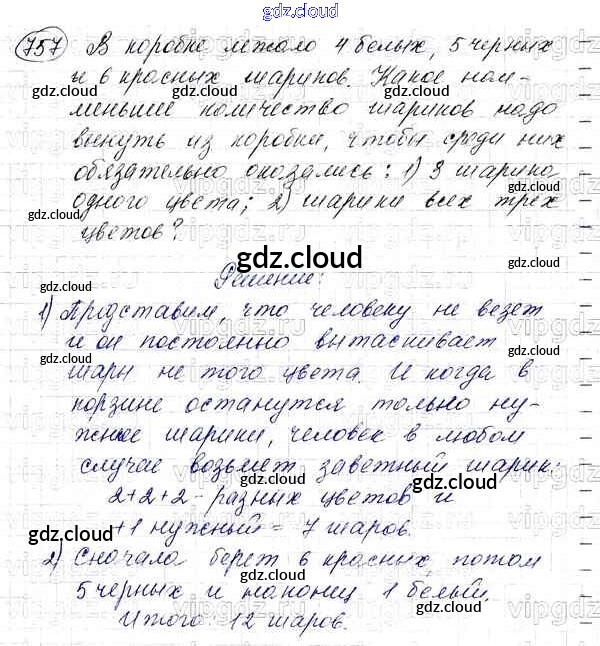 gdz.cloud
757 В коробке лежало 4 белых, 5 черных
и 6 красных шариков. Какое наи-
меньшее количество шариков надо
вынуть из коробки, чтобы среди них
обязательно оказались: 1) 3 шарика
одного цвета; 2) шарики всех трех
цветов?
gdz.cloud
Решение:
1) Представим, что человеку не везет
и он постоянно вытаскивает
шары не того цвета. И когда в
корзине останутся только ну-
жные шарики, человек в любом
случае возьмет заветный шарик:
2+2+2 - разных цветов и
+1 нужный = 7 шаров.
2) Сначала берет 6 красных, потом
5 черных и наконец 1 белый.
Итого: 12 шаров.
gdz.cloud